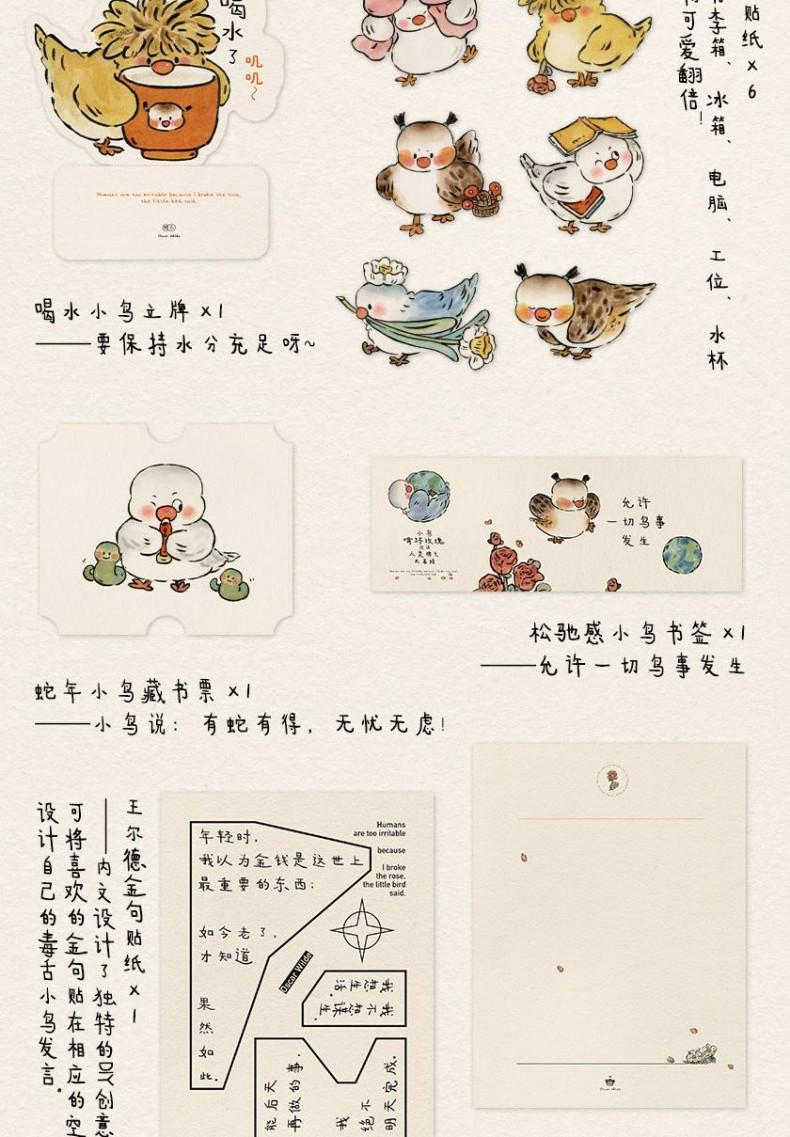 喝水了
叽
叽
~
Humans are too irritable because I broke the rose,
the little bird said.
Oscar Wilde
喝水小鸟立牌 x1
——要保持水分充足呀~
贴纸x6
李箱、冰箱、电脑、工位、水杯
可爱翻倍!
允许
一切鸟事
发生
小鸟
啄坏玫瑰
松弛感小鸟书签 x1
——允许一切鸟事发生
蛇年小鸟藏书票 x1
——小鸟说: 有蛇有得, 无忧无虑!
王尔德金句贴纸x1
——内文设计了独特的只创意
可将喜欢的金句贴在相应的空
设计自己的毒舌小鸟发言.
年轻时,
我以为金钱是这世上
最重要的东西;
如今老了,
才知道
果
然
如
此.
Humans
are too irritable
because
I broke
the rose,
the little bird
said.
Oscar Wilde
我想生活.
我不想谋生.
能后天
再做的事,
我
绝不
明天完成.
Oscar Wilde